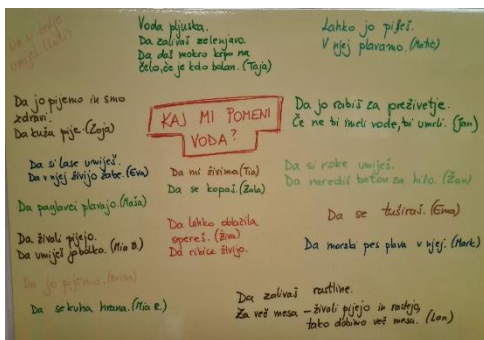 Da si roke
umiješ.
Voda pljuska.
Da zalivaš zelenjavo.
Da daš mokro krpo na
čelo, če je kdo bolan. (Taja)
Lahko jo piješ.
V njej plavamo. (Matic)
Da jo pijemo in smo
zdravi.
Da kuža pije. (Zoja)
KAJ MI POMENI
VODA?
Da jo rabiš za preživetje.
Če ne bi imeli vode, bi umrli. (Jan)
Da si lase umiješ.
Da v njej živijo žabe. (Eva)
Da mi živimo. (Tia)
Da se kopaš. (Zala)
Da si roke umiješ.
Da narediš beton za hišo. (Žan)
Da paglavci plavajo. (Maša)
Da živali pijejo.
Da umiješ jabolko. (Mia B.)
Da lahko oblačila
opereš. (Živa)
Da ribice živijo.
Da se tuširaš. (Ema)
Da morski pes plava v njej. (Mark)
Da jo pijemo.
Da se kuha hrana. (Mia R.)
Da zalivaš rastline.
Za več mesa – živali pijejo in rastejo,
tako dobimo več mesa. (Lan)